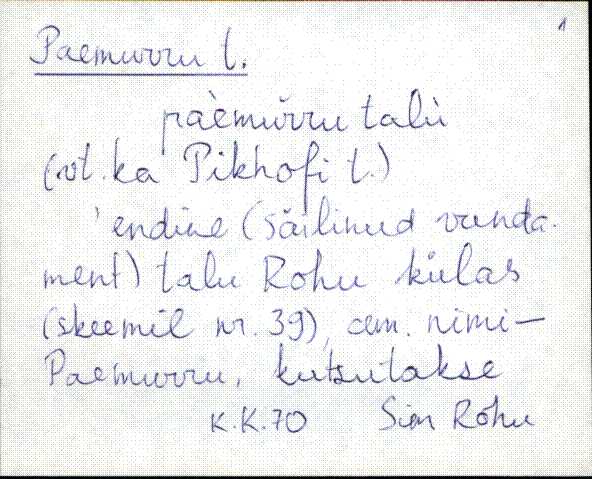 1
Paemurru t.
pàemŭrru talù
(vt. ka Pikhofi t.)
'endine (säilinud vunda-
ment) talu Rohu külas
(skeemil nr. 39), am. nimi—
Paemurru, kutsutakse
K.K.70 Sim Rohu